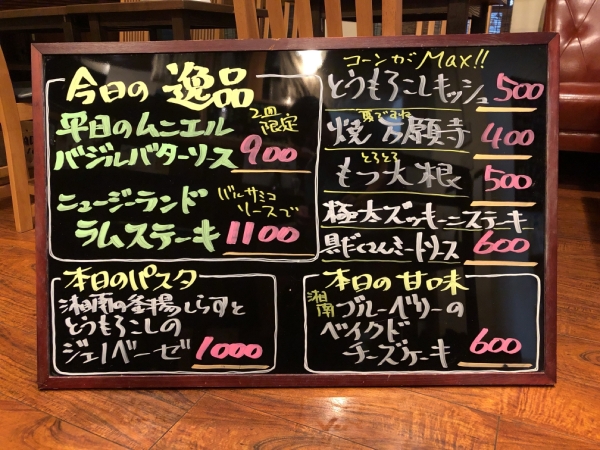 今日の 逸品
平目のムニエル 2皿限定
バジルバターソース 900
ニュージーランド バルサミコソースで
ラムステーキ 1100
コーンがMax!!
とうもろこしキッシュ 500
焼 万願寺 400
とろとろ
もつ大根 500
極太ズッキーニステーキ
具だくさんミートソース 600
本日のパスタ
湘南の釜揚しらすと
とうもろこしの
ジェノベーゼ 1000
本日の甘味
湘南 ブルーベリーの
ベイクド
チーズケーキ 600